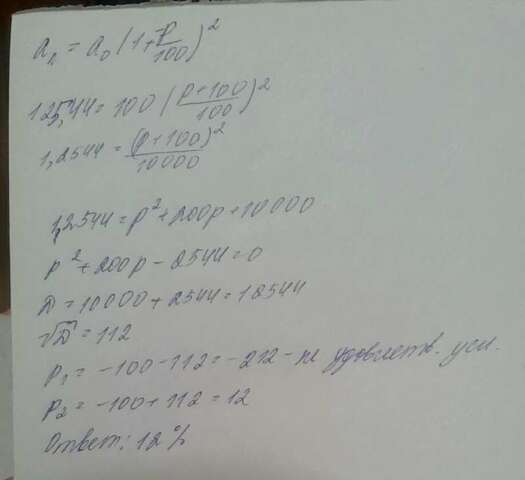 a₂ = a₀(1+p/100)²
125,44 = 100(p+100/100)²
1,2544 = (p+100)²/10000
12544 = p²+200p+10000
p²+200p-2544=0
D=10000+2544=12544
√D=112
p₁=-100-112=-212- не удовлетв. усл.
p₂=-100+112=12
Ответ: 12%